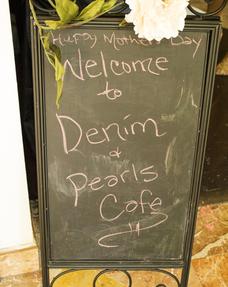 Happy Mothers Day
Welcome
to
Denim
&
Pearls
Cafe